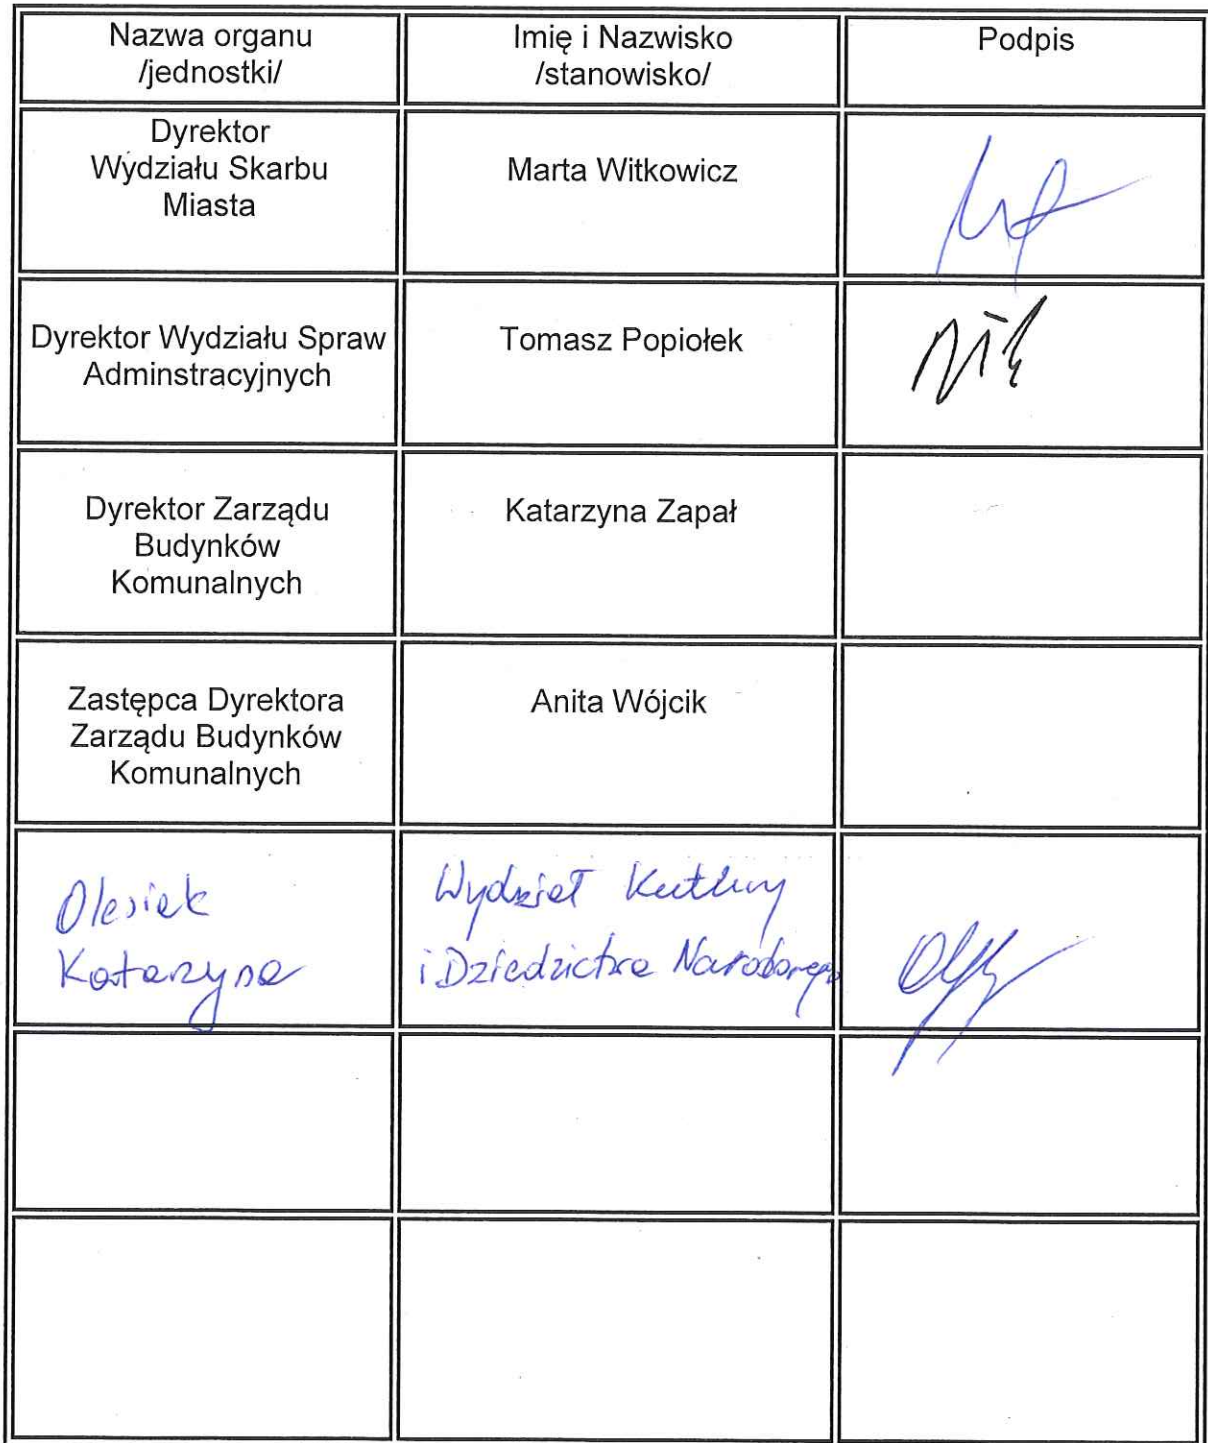 Nazwa organu
/jednostki/
Imię i Nazwisko
/stanowisko/
Podpis
Dyrektor
Wydziału Skarbu
Miasta
Marta Witkowicz
Dyrektor Wydziału Spraw
Adminstracyjnych
Tomasz Popiołek
Dyrektor Zarządu
Budynków
Komunalnych
Katarzyna Zapał
Zastępca Dyrektora
Zarządu Budynków
Komunalnych
Anita Wójcik
Olesiek
Katarzyna
Wydział Kultury
i Dziedzictwa Narodowego